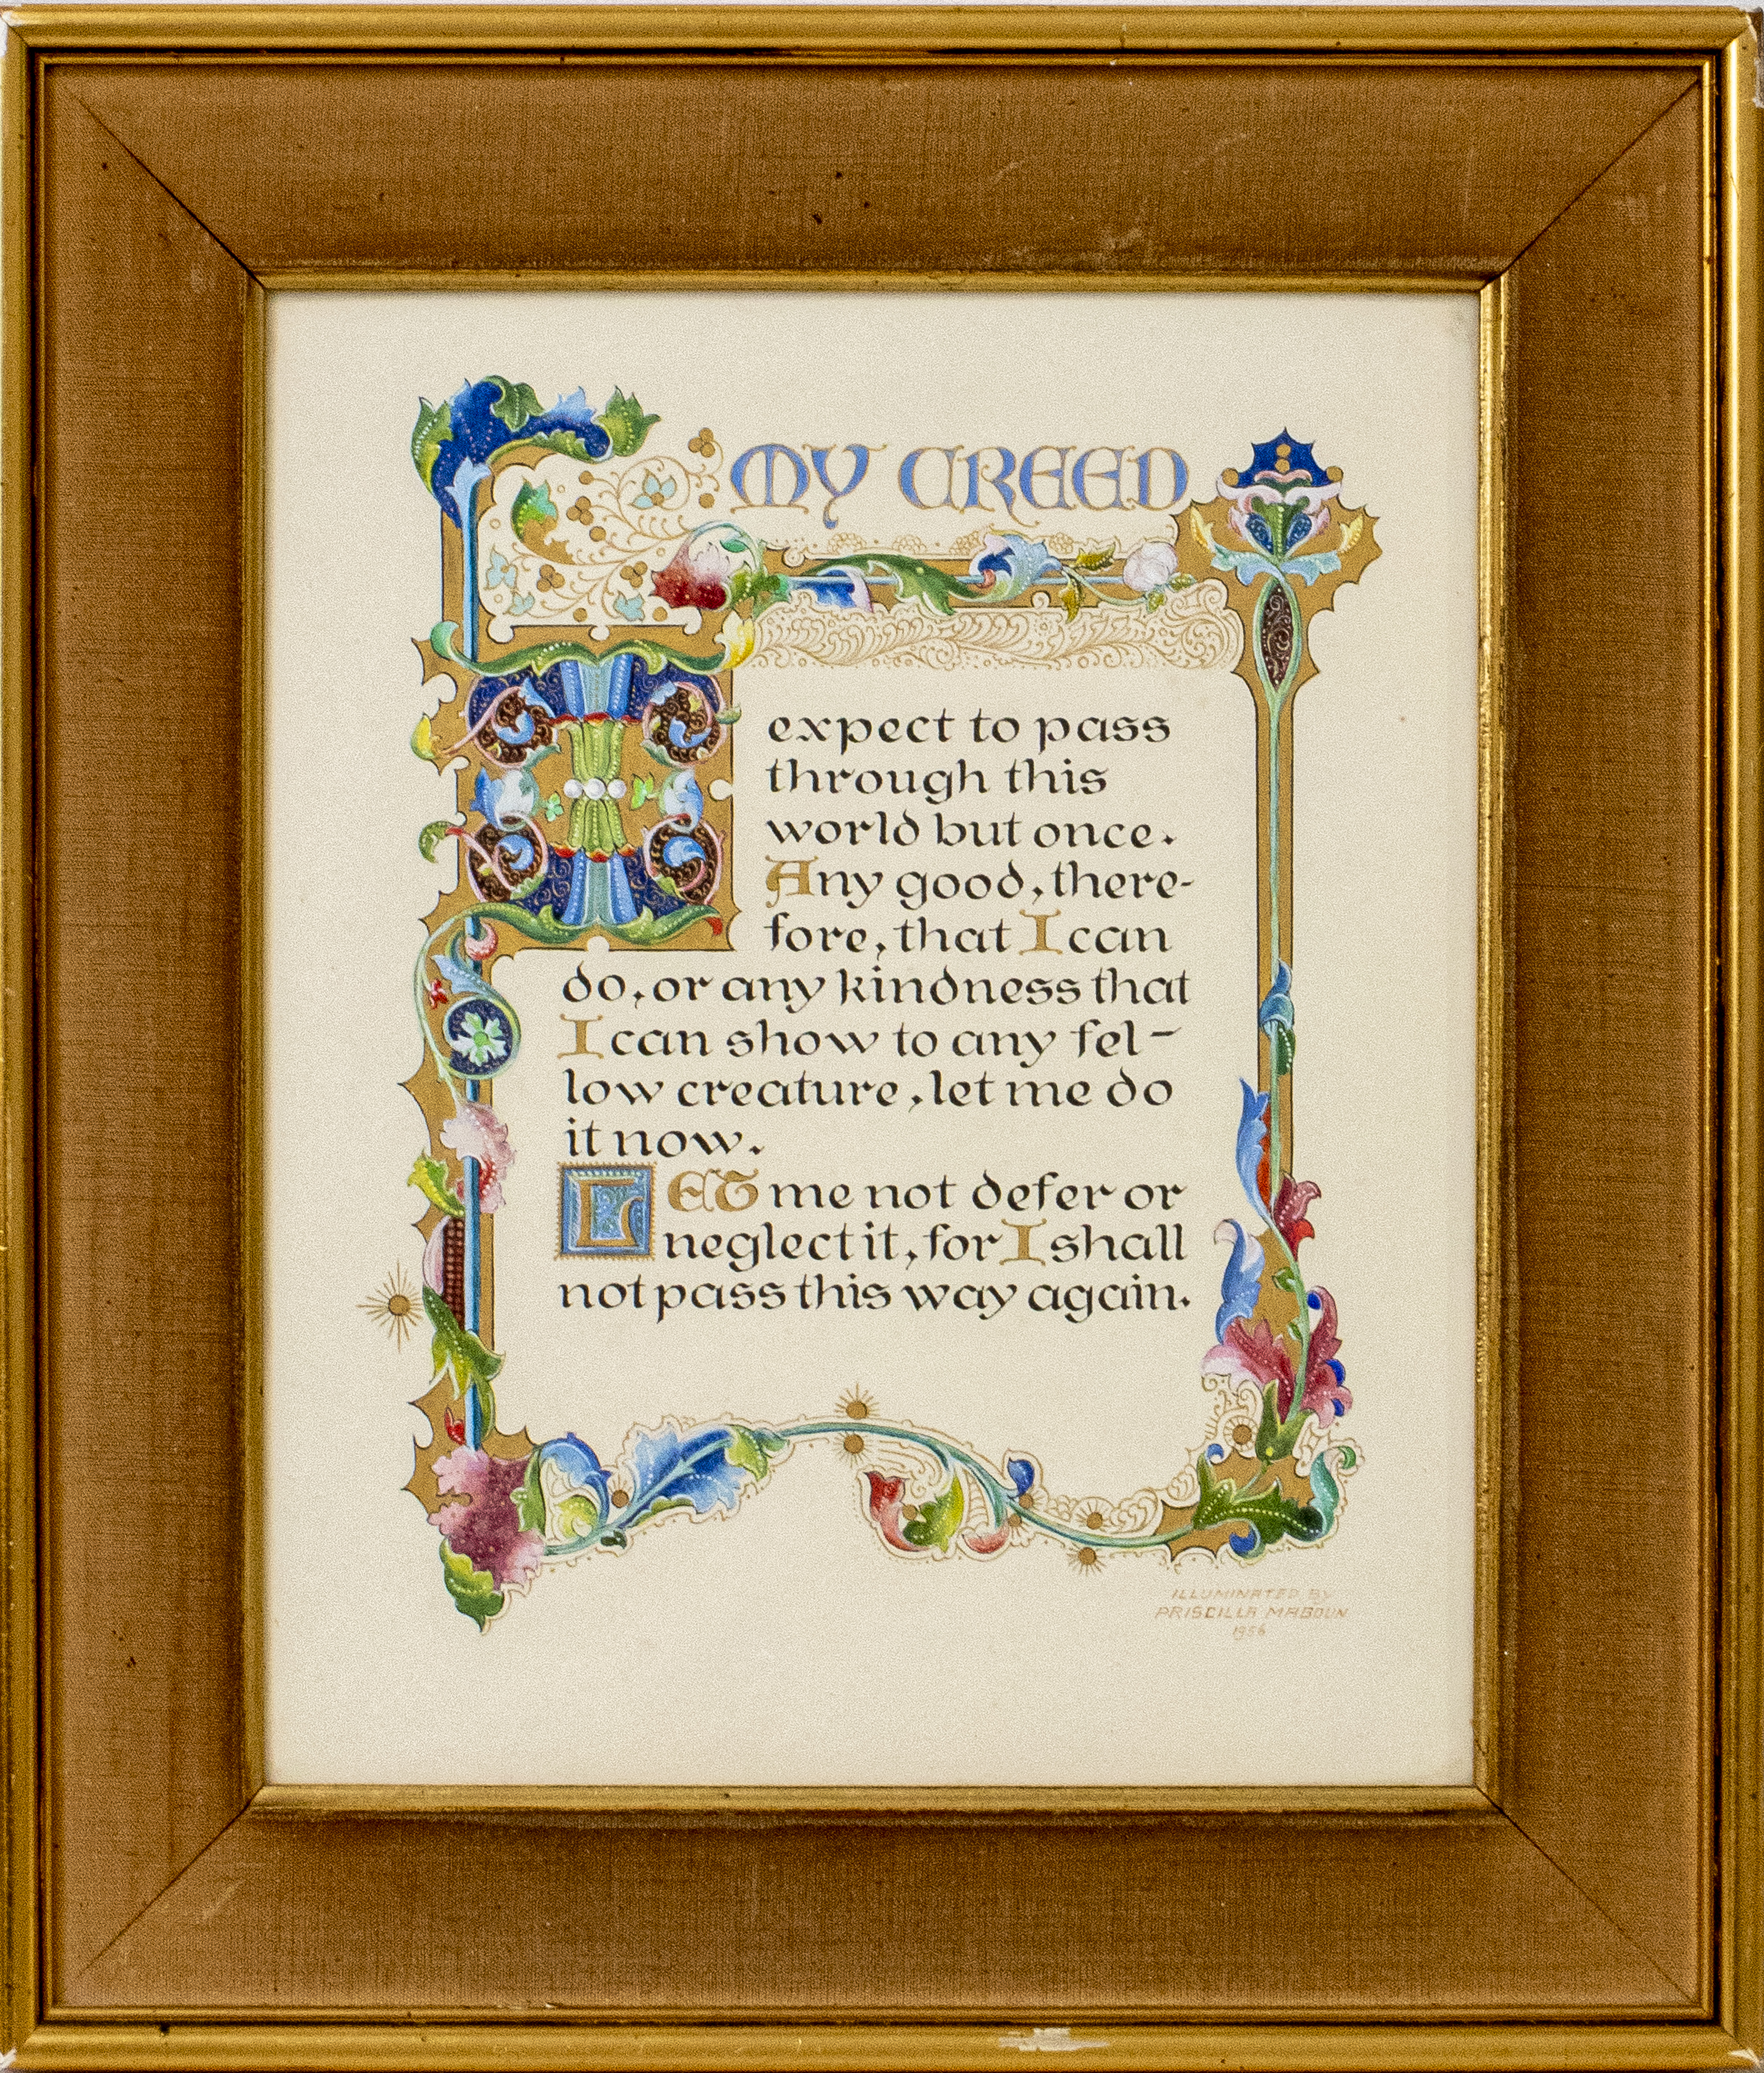 MY CREED
I expect to pass
through this
world but once.
Any good, there-
fore, that I can
do, or any kindness that
I can show to any fel-
low creature, let me do
it now.
LET me not defer or
neglect it, for I shall
not pass this way again.
ILLUMINATED BY
PRISCILLA MAGOUN
1956